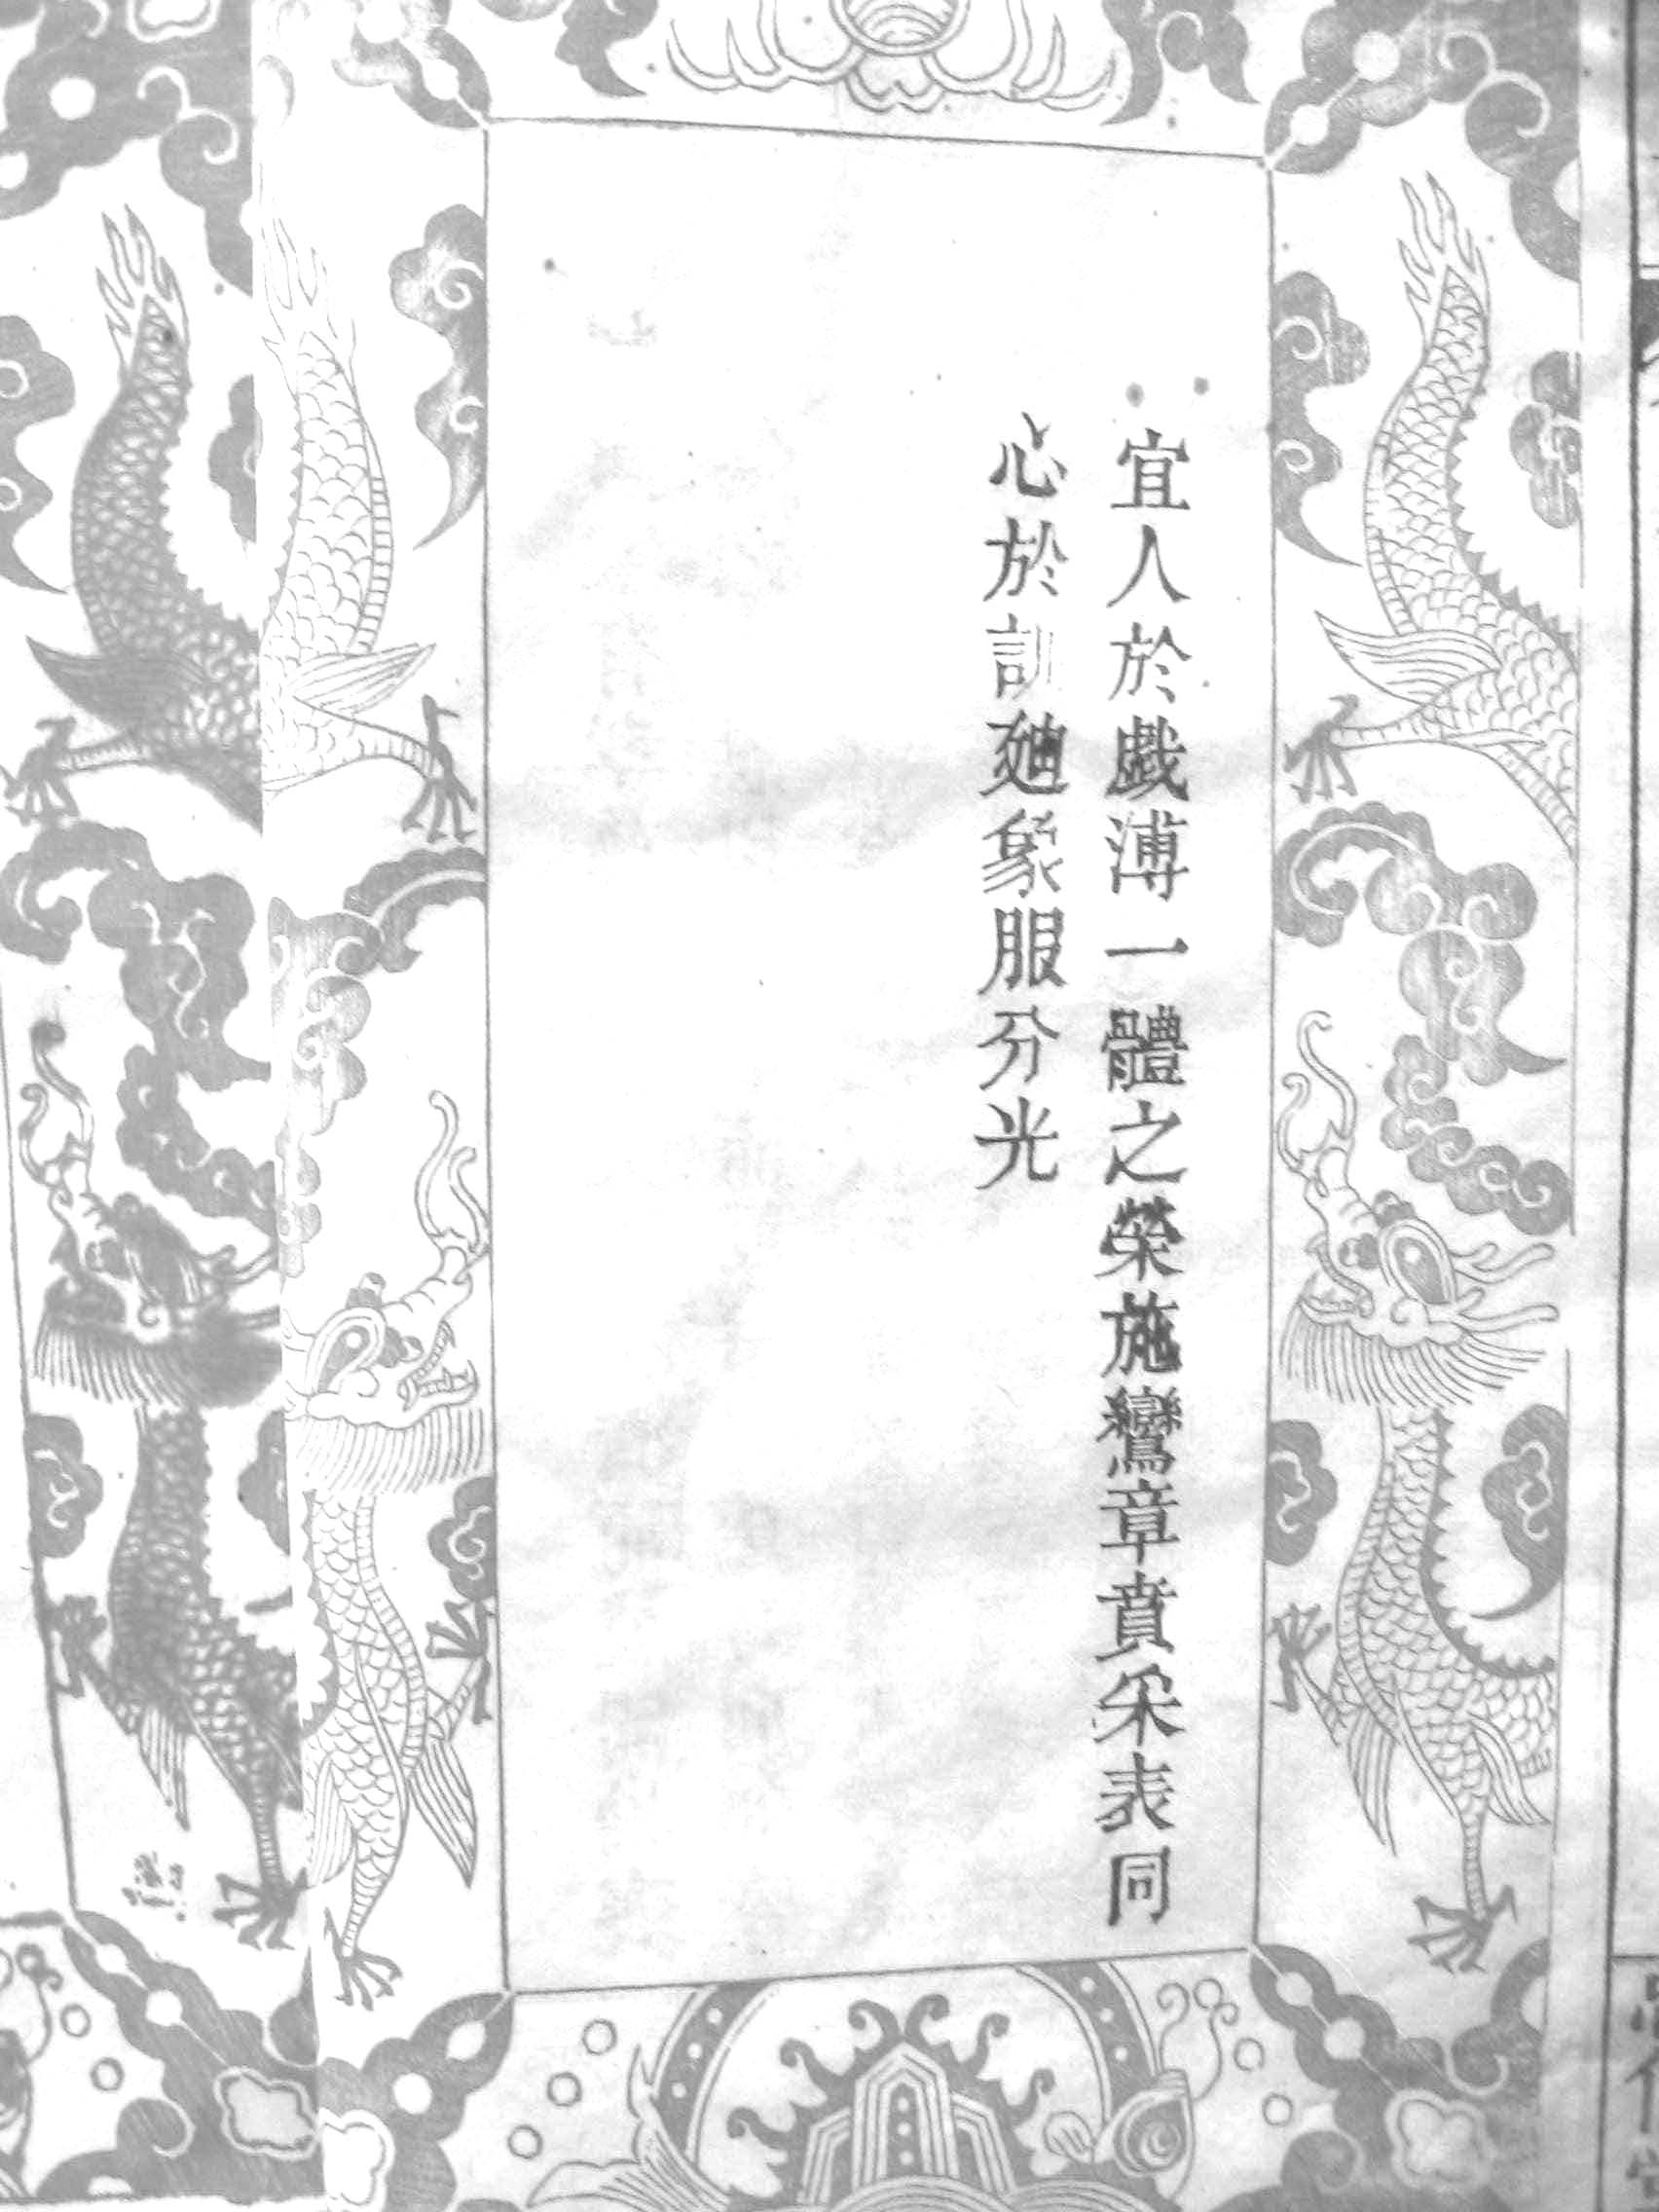 宜人於戯溥一體之榮施鸞章賁采表同
心於訓廸象服分光